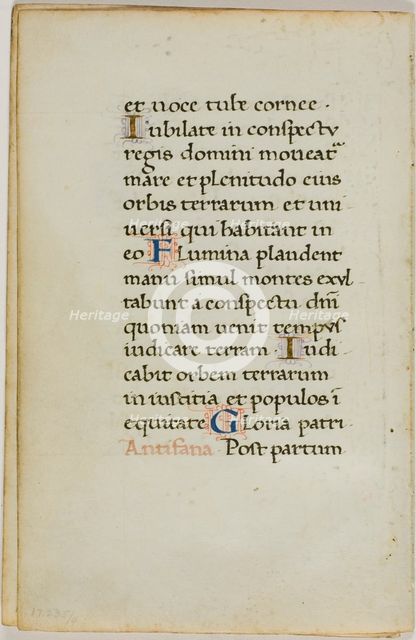 et uoce tube cornee ·
Iubilate in conspectu
regis domini moueat͂
mare et plenitudo eius
orbis terrarum et uni
uersi qui habitant in
eo Flumina plaudent
manu simul montes exul
tabunt a conspectu dm̄i
quoniam uenit tempus
iudicare terram · Iudi
cabit orbem terrarum
in iustitia et populos ī
equitate Gloria patri ·
Antifana · Post partum
Heritage
Heritage
Heritage
Heritage
Heritage
17.235/4